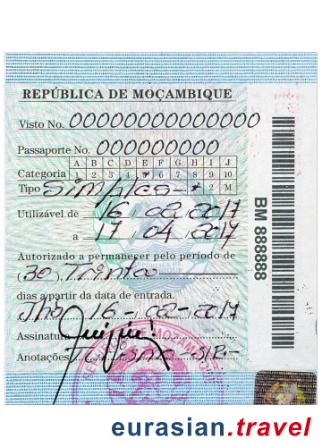 REPÚBLICA DE MOÇAMBIQUE
Visto No. 00000000000000
Passaporte No. 000000000
A B C D E F G H J
Categoria 1 2 3 4 * 6 7 8 9 10
Tipo Simples * 2 M
Utilizável de 16, 02, 2017
a 17 04, 2017
Autorizado a permanecer pelo período de
30, Trinta
dias a partir da data de entrada.
16-02-2017
Assinatura
Anotações
BM 888888
eurasian.travel